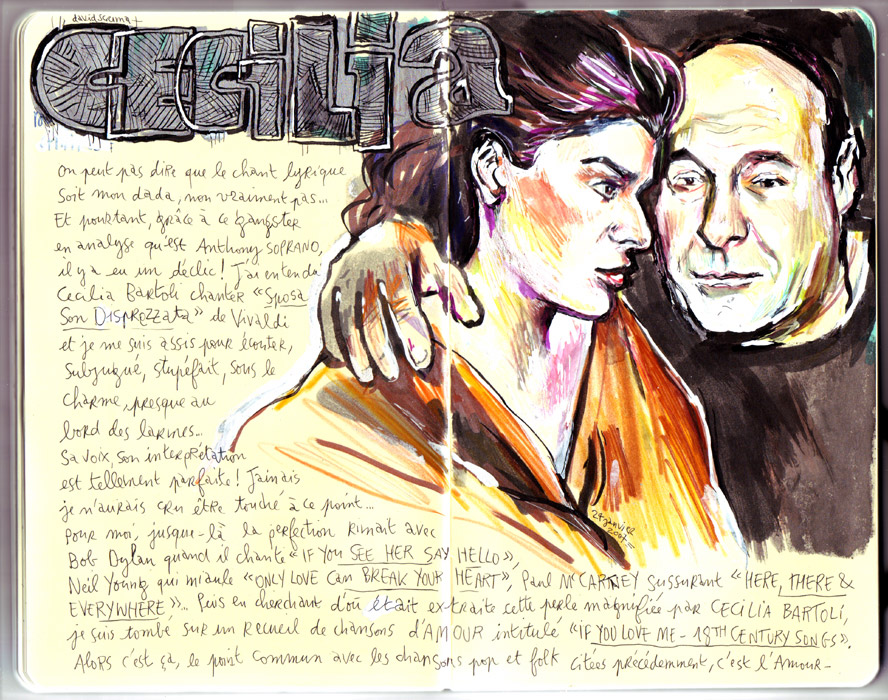 davidscauma
CECILIA
On peut pas dire que le chant lyrique
Soit mon dada, non vraiment pas...
Et pourtant, grâce à ce gangster
en analyse qu'est Anthony SOPRANO,
il y a eu un déclic! J'ai entendu
Cecilia Bartoli chanter «Sposa
Son DISPREZZATA» de Vivaldi
et je me suis assis pour écouter,
Subjugué, stupéfait, sous le
charme, presque au
bord des larmes...
Sa voix, son interprétation
est tellement parfaite! Jamais
je n'aurais cru être touché à ce point...
Pour moi, jusque-là la perfection rimait avec
Bob Dylan quand il chante «IF YOU SEE HER SAY HELLO»,
Neil Young qui miaule «ONLY LOVE CAN BREAK YOUR HEART», Paul McCARTNEY susurrant «HERE, THERE &
EVERYWHERE»... Puis en cherchant d'où était extraite cette perle magnifiée par CECILIA BARTOLI,
je suis tombé sur un recueil de chansons d'AMOUR intitulé «IF YOU LOVE ME - 18TH CENTURY SONGS».
Alors c'est ça, le point commun avec les chansons pop et folk citées précédemment, c'est l'Amour-
24 janvier
2007